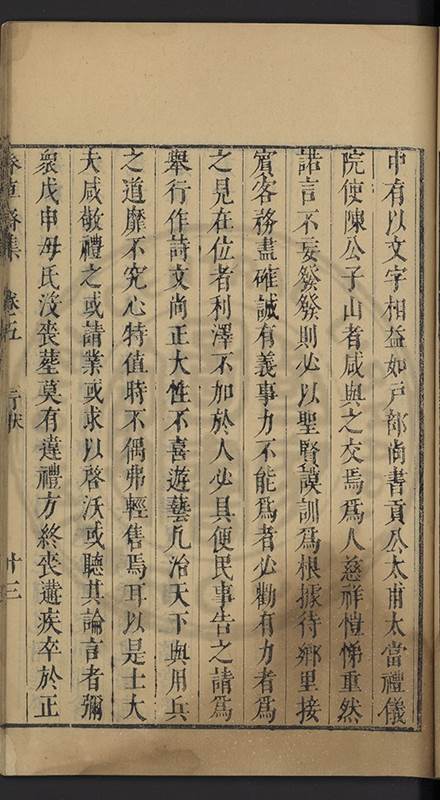 中有以文字相益如戸部尚書貢公太甫太常禮儀
院使陳公子山者咸與之交焉為人慈祥愷悌重然
諾言不妄發發則必以聖賢謨訓為根據待鄉里接
賓客務盡確誠有義事力不能為者必勸有力者為
之見在位者利澤不加於人必具便民事告之請為
舉行作詩文尚正大性不喜遊藝凡治天下與用兵
之道靡不究心特值時不偶弗輕售焉耳以是士大
夫咸敬禮之或請業或求以啓沃或聽其論言者彌
衆戊申母氏沒喪塟莫有違禮方終喪遘疾卒於正
集 卷之五 行狀 十三